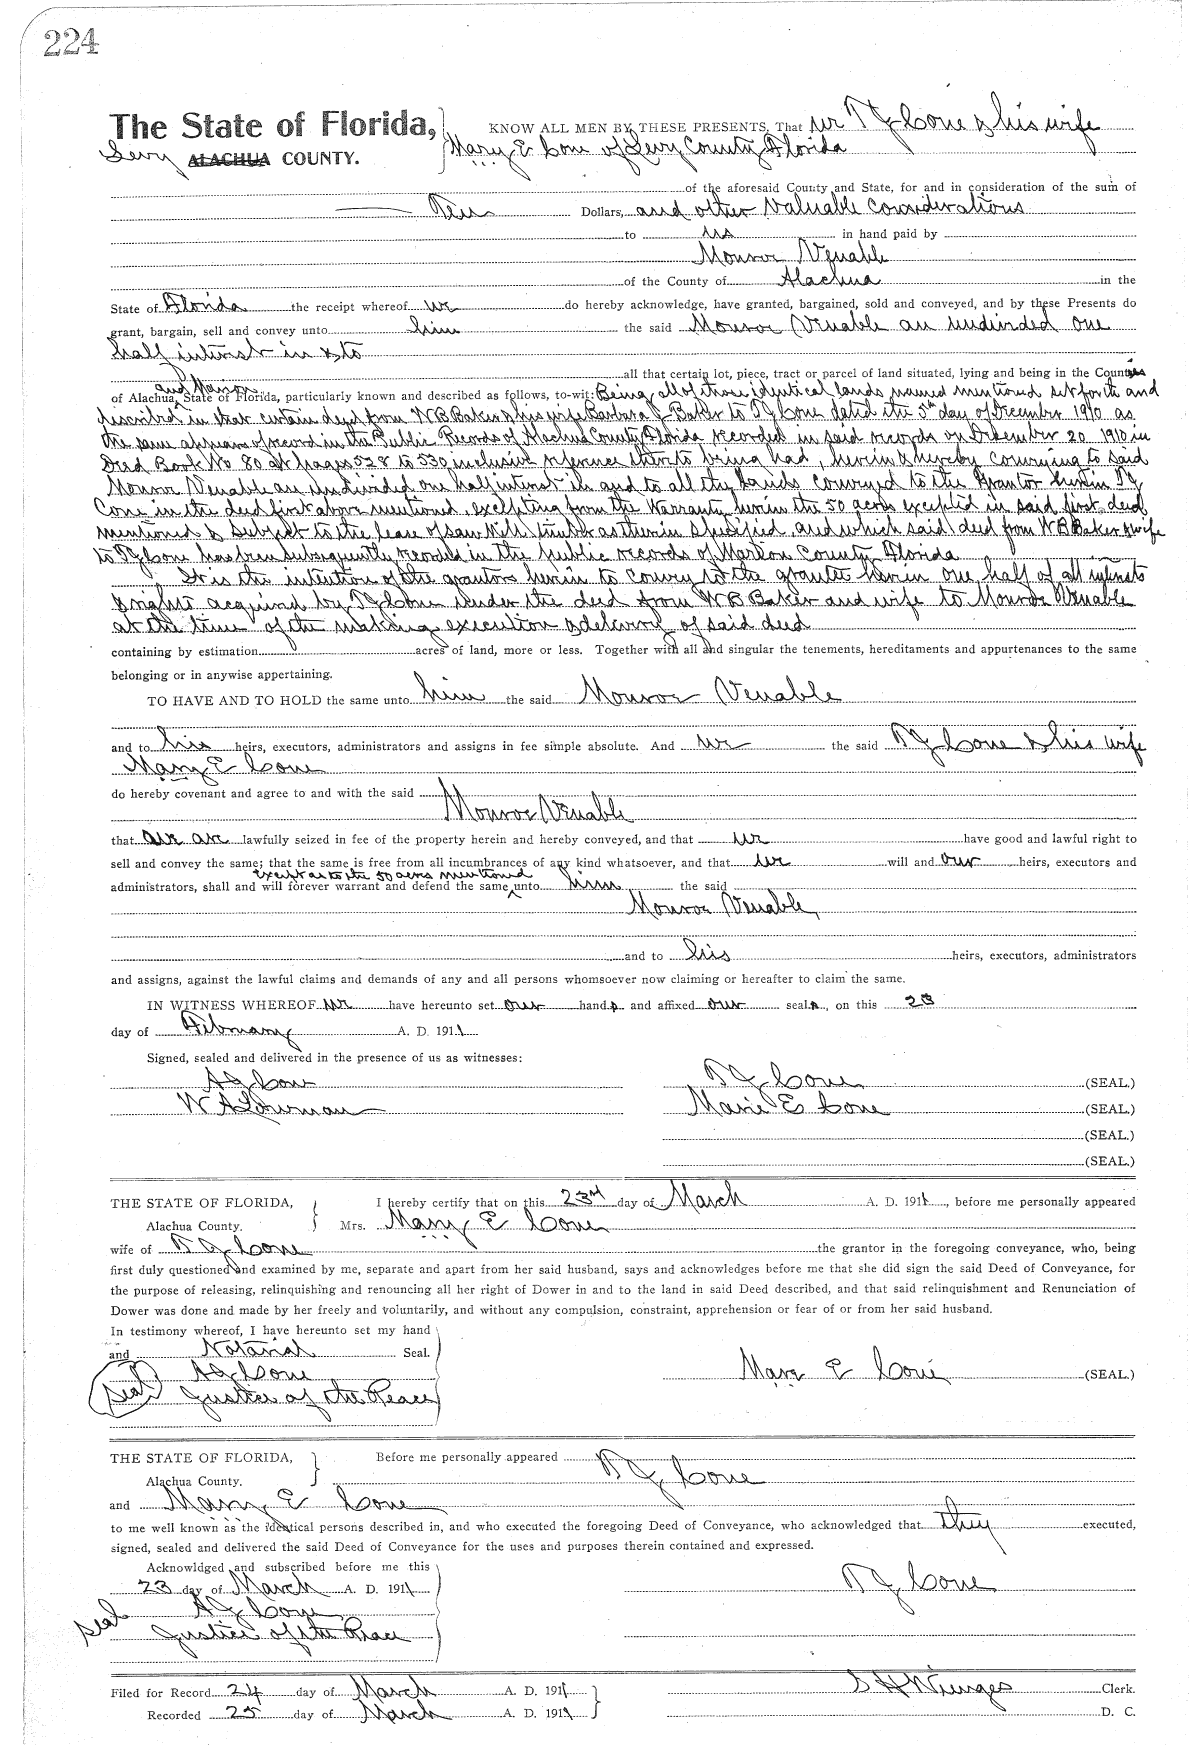 224
The State of Florida, KNOW ALL MEN BY THESE PRESENTS, That we T J Cone & his wife
Levy ALACHUA COUNTY. Mary E Cone of Levy County Florida
of the aforesaid County and State, for and in consideration of the sum of
Ten Dollars, and other Valuable Considerations
to us in hand paid by
Monroe Venable
of the County of Alachua in the
State of Florida the receipt whereof we do hereby acknowledge, have granted, bargained, sold and conveyed, and by these Presents do
grant, bargain, sell and convey unto him the said Monroe Venable an undivided one
half interest in & to
all that certain lot, piece, tract or parcel of land situated, lying and being in the Counties
and Marion
of Alachua, State of Florida, particularly known and described as follows, to-wit: Being all of those identical lands named mentioned set forth and
described in that certain deed from W B Baker & his wife Barbara J Baker to T J Cone dated the 5th day of December 1910 as
the same appears of record in the Public Records of Alachua County Florida recorded in said records on December 20 1910 in
Deed Book No 80 at pages 528 to 530 inclusive reference thereto being had, herein & hereby conveying to said
Monroe Venable an undivided one half interest in and to all the lands conveyed to the Grantor herein T J
Cone in the deed first above mentioned, excepting from the Warranty herein the 50 acres excepted in said first deed
mentioned & subject to the lease of saw mill timber as therein specified, and which said deed from W B Baker & wife
to T J Cone has been subsequently recorded in the public records of Marion County Florida
It is the intention of the grantors herein to convey to the grantee herein one half of all interests
& rights acquired by T J Cone under the deed from W B Baker and wife to Monroe Venable
at the time of the making execution & delivery of said deed
containing by estimation acres of land, more or less. Together with all and singular the tenements, hereditaments and appurtenances to the same
belonging or in anywise appertaining.
TO HAVE AND TO HOLD the same unto him the said Monroe Venable
and to his heirs, executors, administrators and assigns in fee simple absolute. And we the said T J Cone & his wife
Mary E Cone
do hereby covenant and agree to and with the said Monroe Venable
that we are lawfully seized in fee of the property herein and hereby conveyed, and that we have good and lawful right to
sell and convey the same; that the same is free from all incumbrances of any kind whatsoever, and that we will and our heirs, executors and
except as to the 50 acres mentioned
administrators, shall and will forever warrant and defend the same unto him the said
Monroe Venable
and to his heirs, executors, administrators
and assigns, against the lawful claims and demands of any and all persons whomsoever now claiming or hereafter to claim the same.
IN WITNESS WHEREOF we have hereunto set our hands and affixed our seals, on this 23
day of February A. D. 1911
Signed, sealed and delivered in the presence of us as witnesses:
A J Cone T J Cone (SEAL.)
W A Lowman Marie E Cone (SEAL.)
(SEAL.)
(SEAL.)
THE STATE OF FLORIDA, I hereby certify that on this 23rd day of March A. D. 1911, before me personally appeared
Alachua County. Mrs. Mary E Cone
wife of T J Cone the grantor in the foregoing conveyance, who, being
first duly questioned and examined by me, separate and apart from her said husband, says and acknowledges before me that she did sign the said Deed of Conveyance, for
the purpose of releasing, relinquishing and renouncing all her right of Dower in and to the land in said Deed described, and that said relinquishment and Renunciation of
Dower was done and made by her freely and voluntarily, and without any compulsion, constraint, apprehension or fear of or from her said husband.
In testimony whereof, I have hereunto set my hand
and Notarial Seal.
A J Cone Mary E Cone (SEAL.)
Seal Justice of the Peace
THE STATE OF FLORIDA, Before me personally appeared T J Cone
Alachua County.
and Mary E Cone
to me well known as the identical persons described in, and who executed the foregoing Deed of Conveyance, who acknowledged that they executed,
signed, sealed and delivered the said Deed of Conveyance for the uses and purposes therein contained and expressed.
Acknowldged and subscribed before me this
23 day of March A. D. 1911 T J Cone
A J Cone
Seal Justice of the Peace
Filed for Record 24 day of March A. D. 1911 S H Wienges Clerk.
Recorded 25 day of March A. D. 1911 D. C.